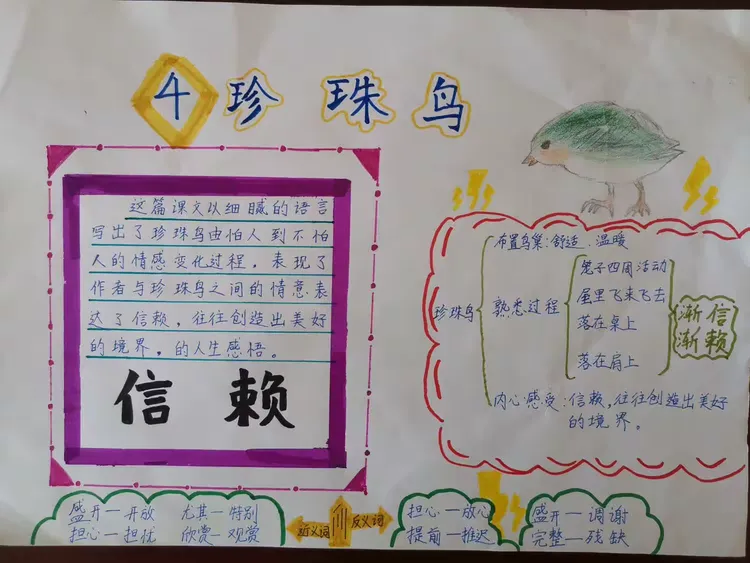 4 珍珠鸟
这篇课文以细腻的语言
写出了珍珠鸟由怕人到不怕
人的情感变化过程，表现了
作者与珍珠鸟之间的情意表
达了信赖，往往创造出美好
的境界，的人生感悟。
信赖
珍珠鸟
布置鸟巢：舒适、温暖
熟悉过程
笼子四周活动
屋里飞来飞去
落在桌上
落在肩上
渐渐信赖
内心感受：信赖，往往创造出美好
的境界。
盛开—开放 尤其—特别
担心—担忧 欣赏—观赏
近义词 反义词
担心—放心
提前—推迟
盛开—凋谢
完整—残缺